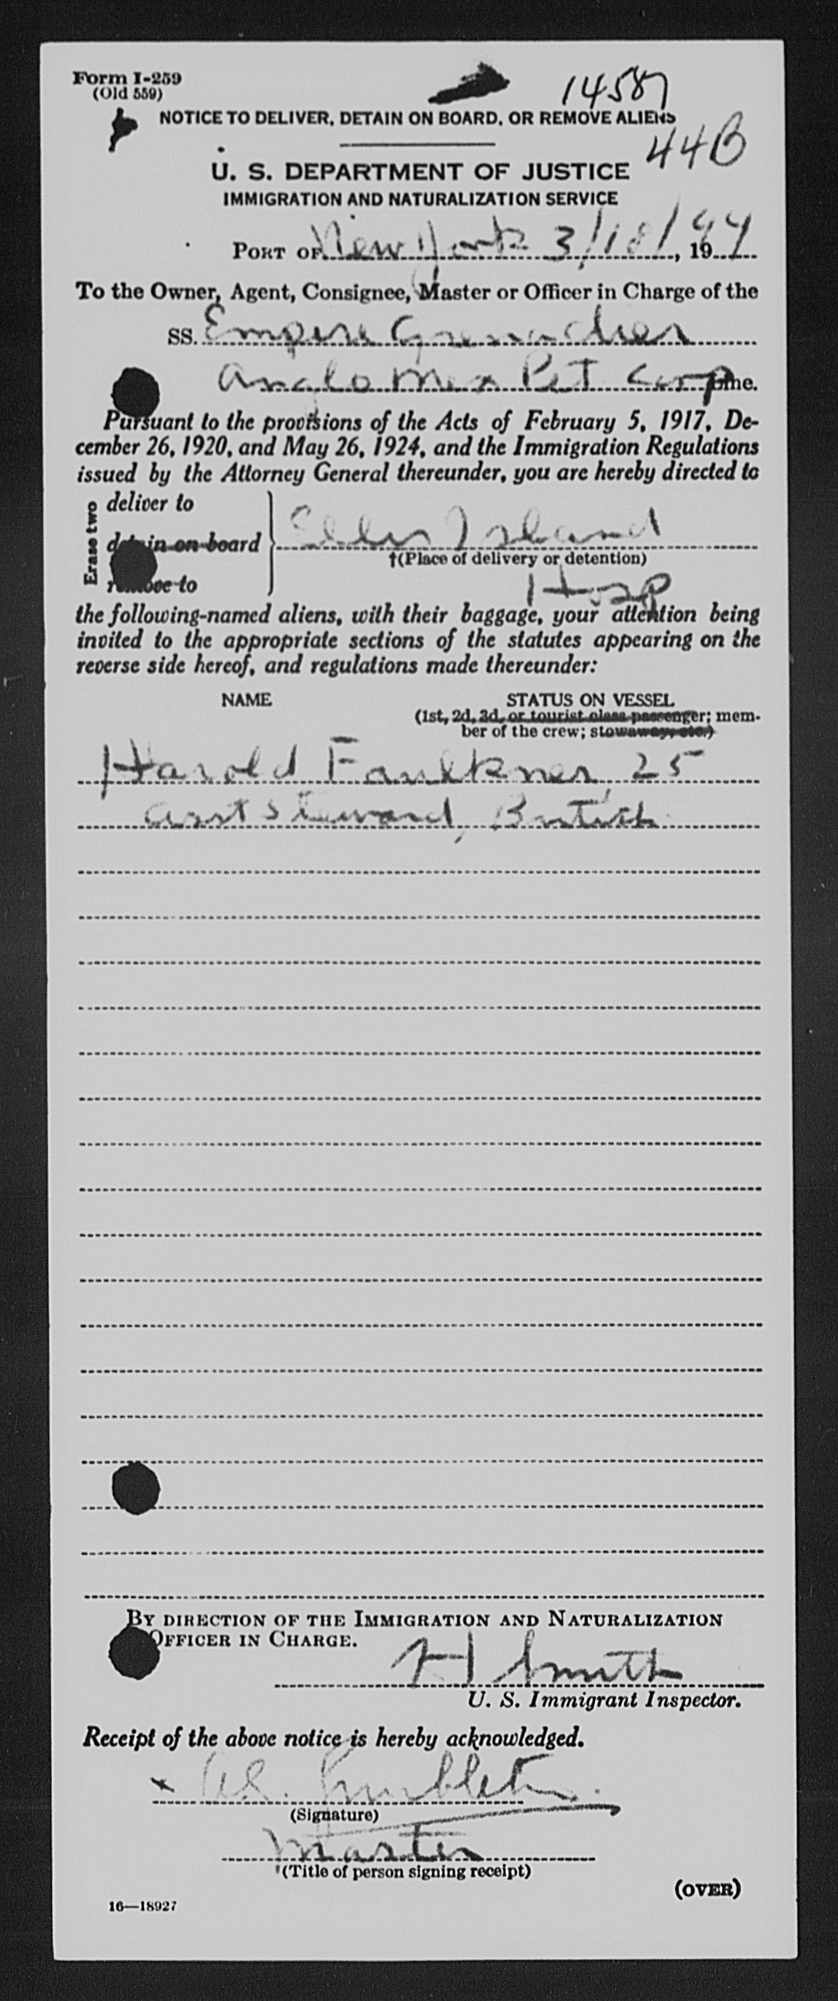 Form I-259
(Old 559)
14587
NOTICE TO DELIVER, DETAIN ON BOARD, OR REMOVE ALIENS
44B
U. S. DEPARTMENT OF JUSTICE
IMMIGRATION AND NATURALIZATION SERVICE
PORT OF New York 3/18/, 1944
To the Owner, Agent, Consignee, Master or Officer in Charge of the
SS. Empire Grenadier
Anglo Mex Pet Corp Line.
Pursuant to the provisions of the Acts of February 5, 1917, De-
cember 26, 1920, and May 26, 1924, and the Immigration Regulations
issued by the Attorney General thereunder, you are hereby directed to
Erase two
deliver to
detain on board
remove to
Ellis Island
†(Place of delivery or detention)
Hosp
the following-named aliens, with their baggage, your attention being
invited to the appropriate sections of the statutes appearing on the
reverse side hereof, and regulations made thereunder:
NAME STATUS ON VESSEL
(1st, 2d, 3d, or tourist class passenger; mem-
ber of the crew; stowaway, etc.)
Harold Faulkner, 25
Asst Steward, British
BY DIRECTION OF THE IMMIGRATION AND NATURALIZATION
OFFICER IN CHARGE.
H Smith
U. S. Immigrant Inspector.
Receipt of the above notice is hereby acknowledged.
x
(Signature)
Master
(Title of person signing receipt)
(OVER)
16—18927